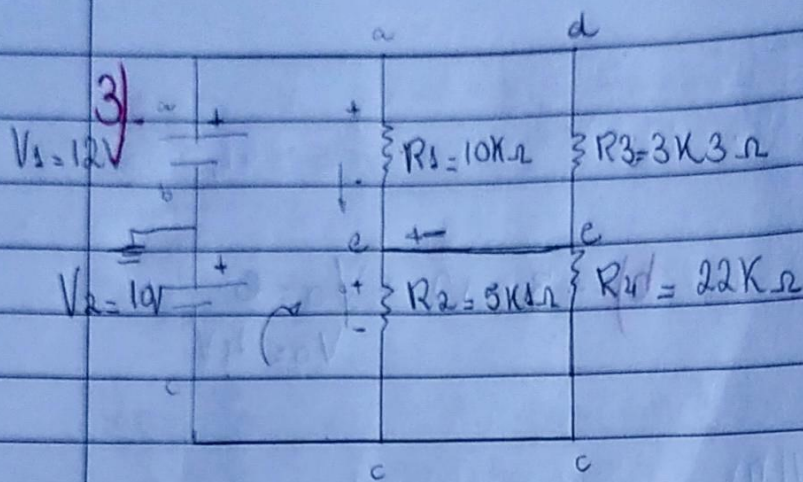 a d
3)
a + +
V1=12V R1=10KΩ R3=3K3Ω
b -
e +- e
+ +
V2=10V R2=5K1Ω R4=22KΩ
-
c
c c